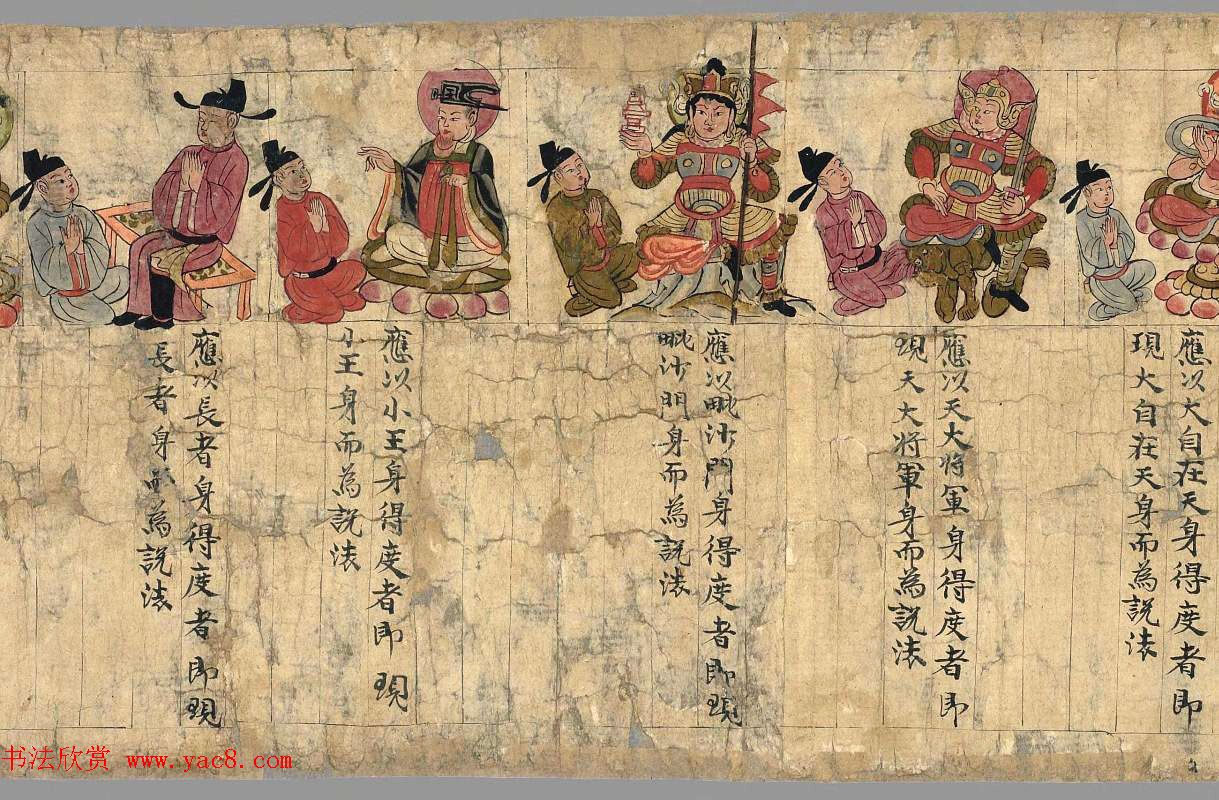 應以大自在天身得度者即
現大自在天身而為說法
應以天大將軍身得度者即
現天大將軍身而為說法
應以毗沙門身得度者即現
毗沙門身而為說法
應以小王身得度者即現
小王身而為說法
應以長者身得度者即現
長者身而為說法
书法欣赏 www.yac8.com